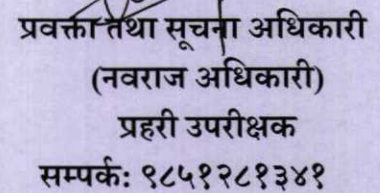 प्रवक्ता तथा सूचना अधिकारी
(नवराज अधिकारी)
प्रहरी उपरीक्षक
सम्पर्कः ९८५१२८१३४१